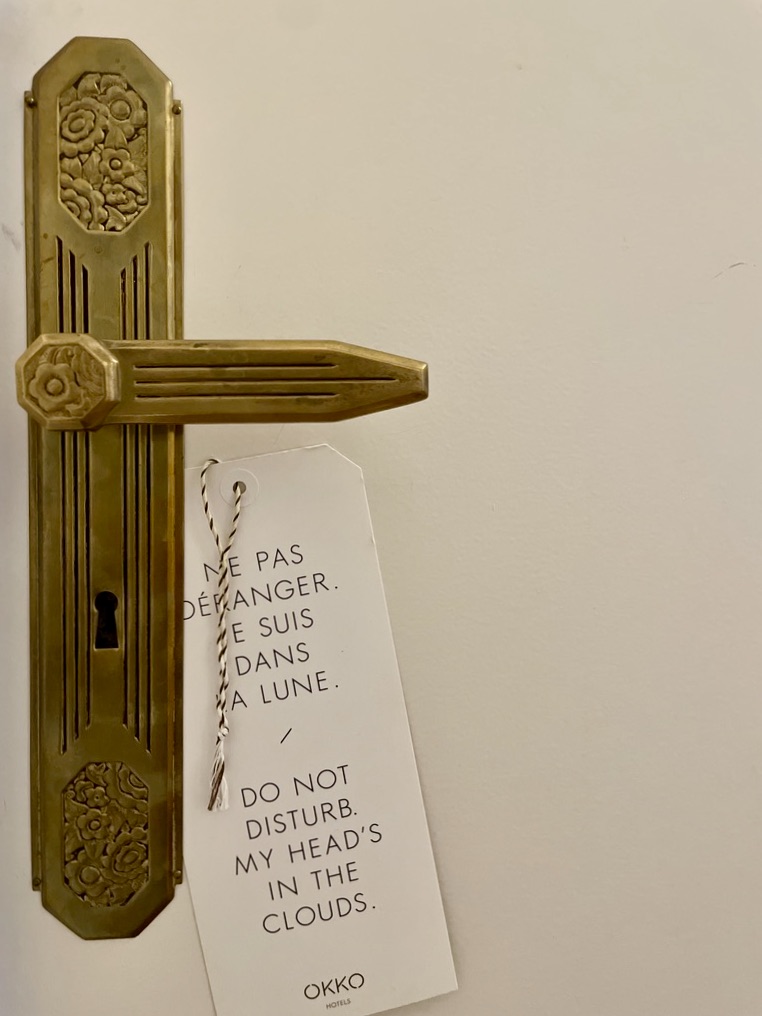 NE PAS
DÉRANGER.
JE SUIS
DANS
LA LUNE.
/
DO NOT
DISTURB.
MY HEAD'S
IN THE
CLOUDS.
OKKO
HOTELS